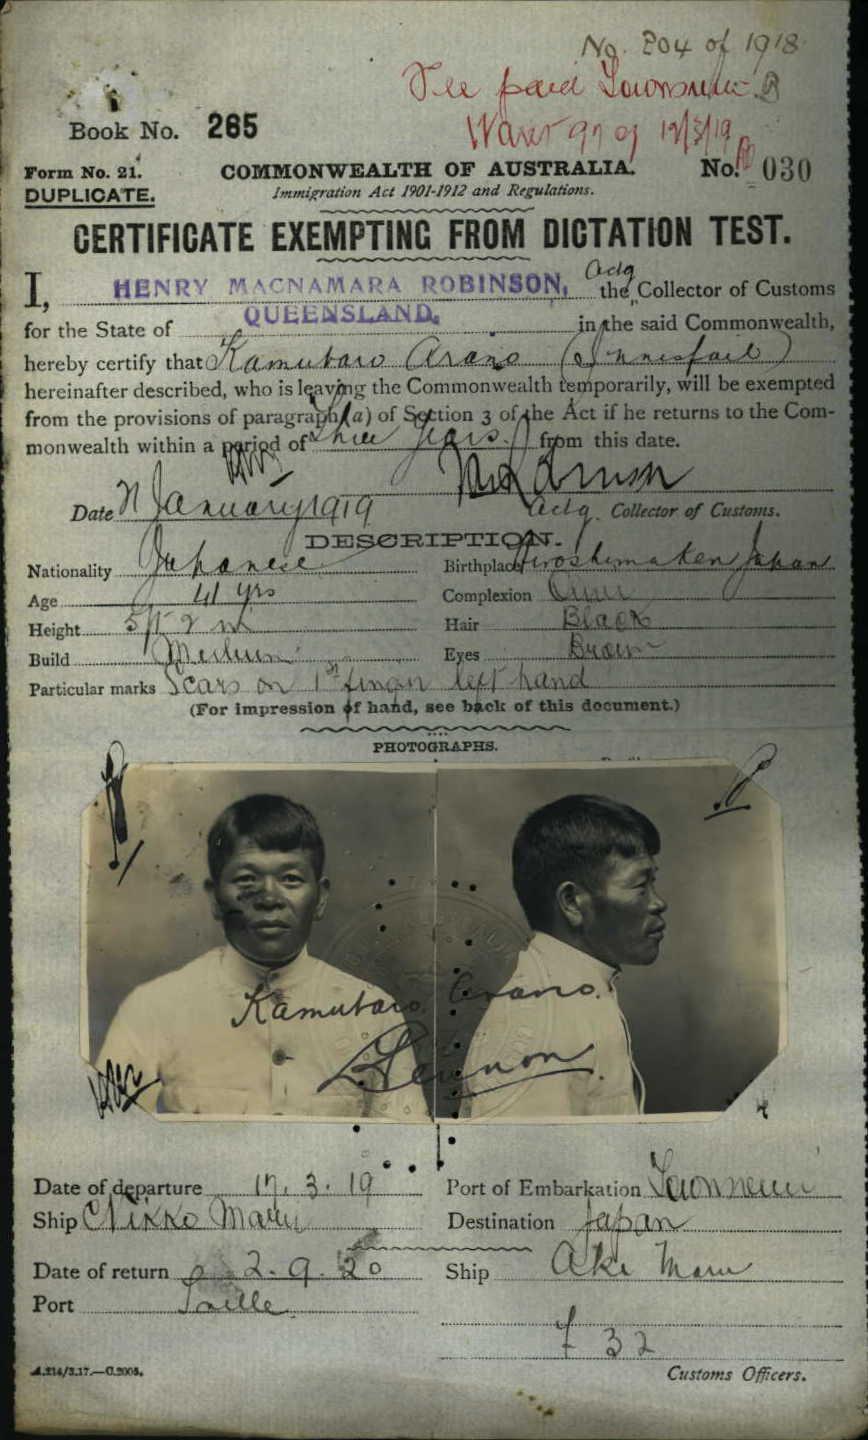 No. 204 of 1918
Fee paid Townsville
Warr 97 of 12/3/19
Book No. 265
Form No. 21.
COMMONWEALTH OF AUSTRALIA.
No. 030
DUPLICATE.
Immigration Act 1901-1912 and Regulations.
CERTIFICATE EXEMPTING FROM DICTATION TEST.
I, HENRY MACNAMARA ROBINSON, Actg the Collector of Customs
for the State of QUEENSLAND. in the said Commonwealth,
hereby certify that Kamutaro Arano (Innisfail)
hereinafter described, who is leaving the Commonwealth temporarily, will be exempted
from the provisions of paragraph (a) of Section 3 of the Act if he returns to the Com-
monwealth within a period of three years from this date.
Date January 1919 Actg. Collector of Customs.
DESCRIPTION.
Nationality Japanese Birthplace Hiroshima Ken Japan
Age 41 yrs Complexion
Height 5 ft 2 in Hair Black
Build Medium Eyes Brown
Particular marks Scars on 1st finger left hand
(For impression of hand, see back of this document.)
PHOTOGRAPHS.
Kamutaro Arano.
Date of departure 17. 3. 19 Port of Embarkation Townsville
Ship Nikko Maru Destination Japan
Date of return 2. 9. 20 Ship Aki Maru
Port T'ville
F 32
A.214/3.17.—C.2005. Customs Officers.